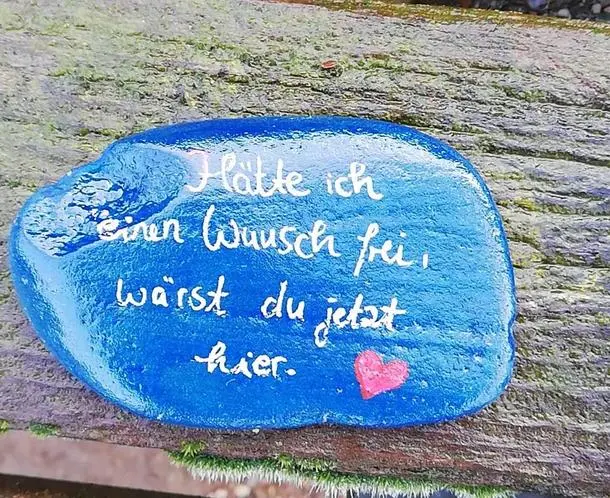 Hätte ich
einen Wunsch frei,
wärst du jetzt
hier.